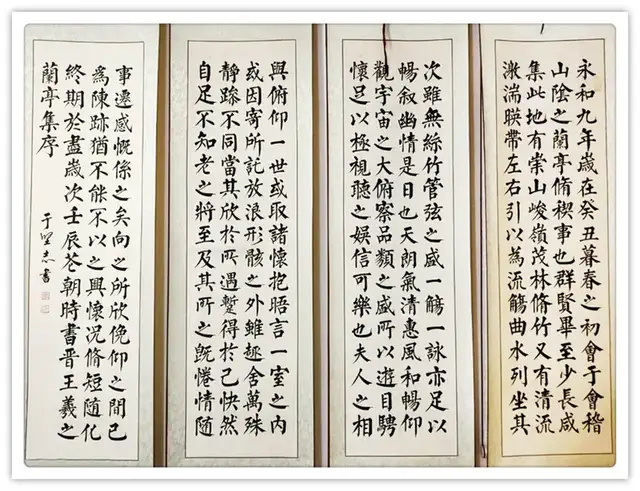 永和九年歲在癸丑暮春之初會于會稽
山陰之蘭亭脩稧事也群賢畢至少長咸
集此地有崇山峻嶺茂林脩竹又有清流
激湍暎帶左右引以為流觴曲水列坐其
次雖無絲竹管弦之盛一觴一詠亦足以
暢叙幽情是日也天朗氣清惠風和暢仰
觀宇宙之大俯察品類之盛所以遊目騁
懷足以極視聽之娛信可樂也夫人之相
與俯仰一世或取諸懷抱晤言一室之內
或因寄所託放浪形骸之外雖趣舍萬殊
靜躁不同當其欣於所遇蹔得於己快然
自足不知老之將至及其所之既惓情隨
事遷感慨係之矣向之所欣俛仰之間已
為陳跡猶不能不以之興懷況脩短隨化
終期於盡歲次壬辰花朝時書晉王羲之
蘭亭集序
于堅志書